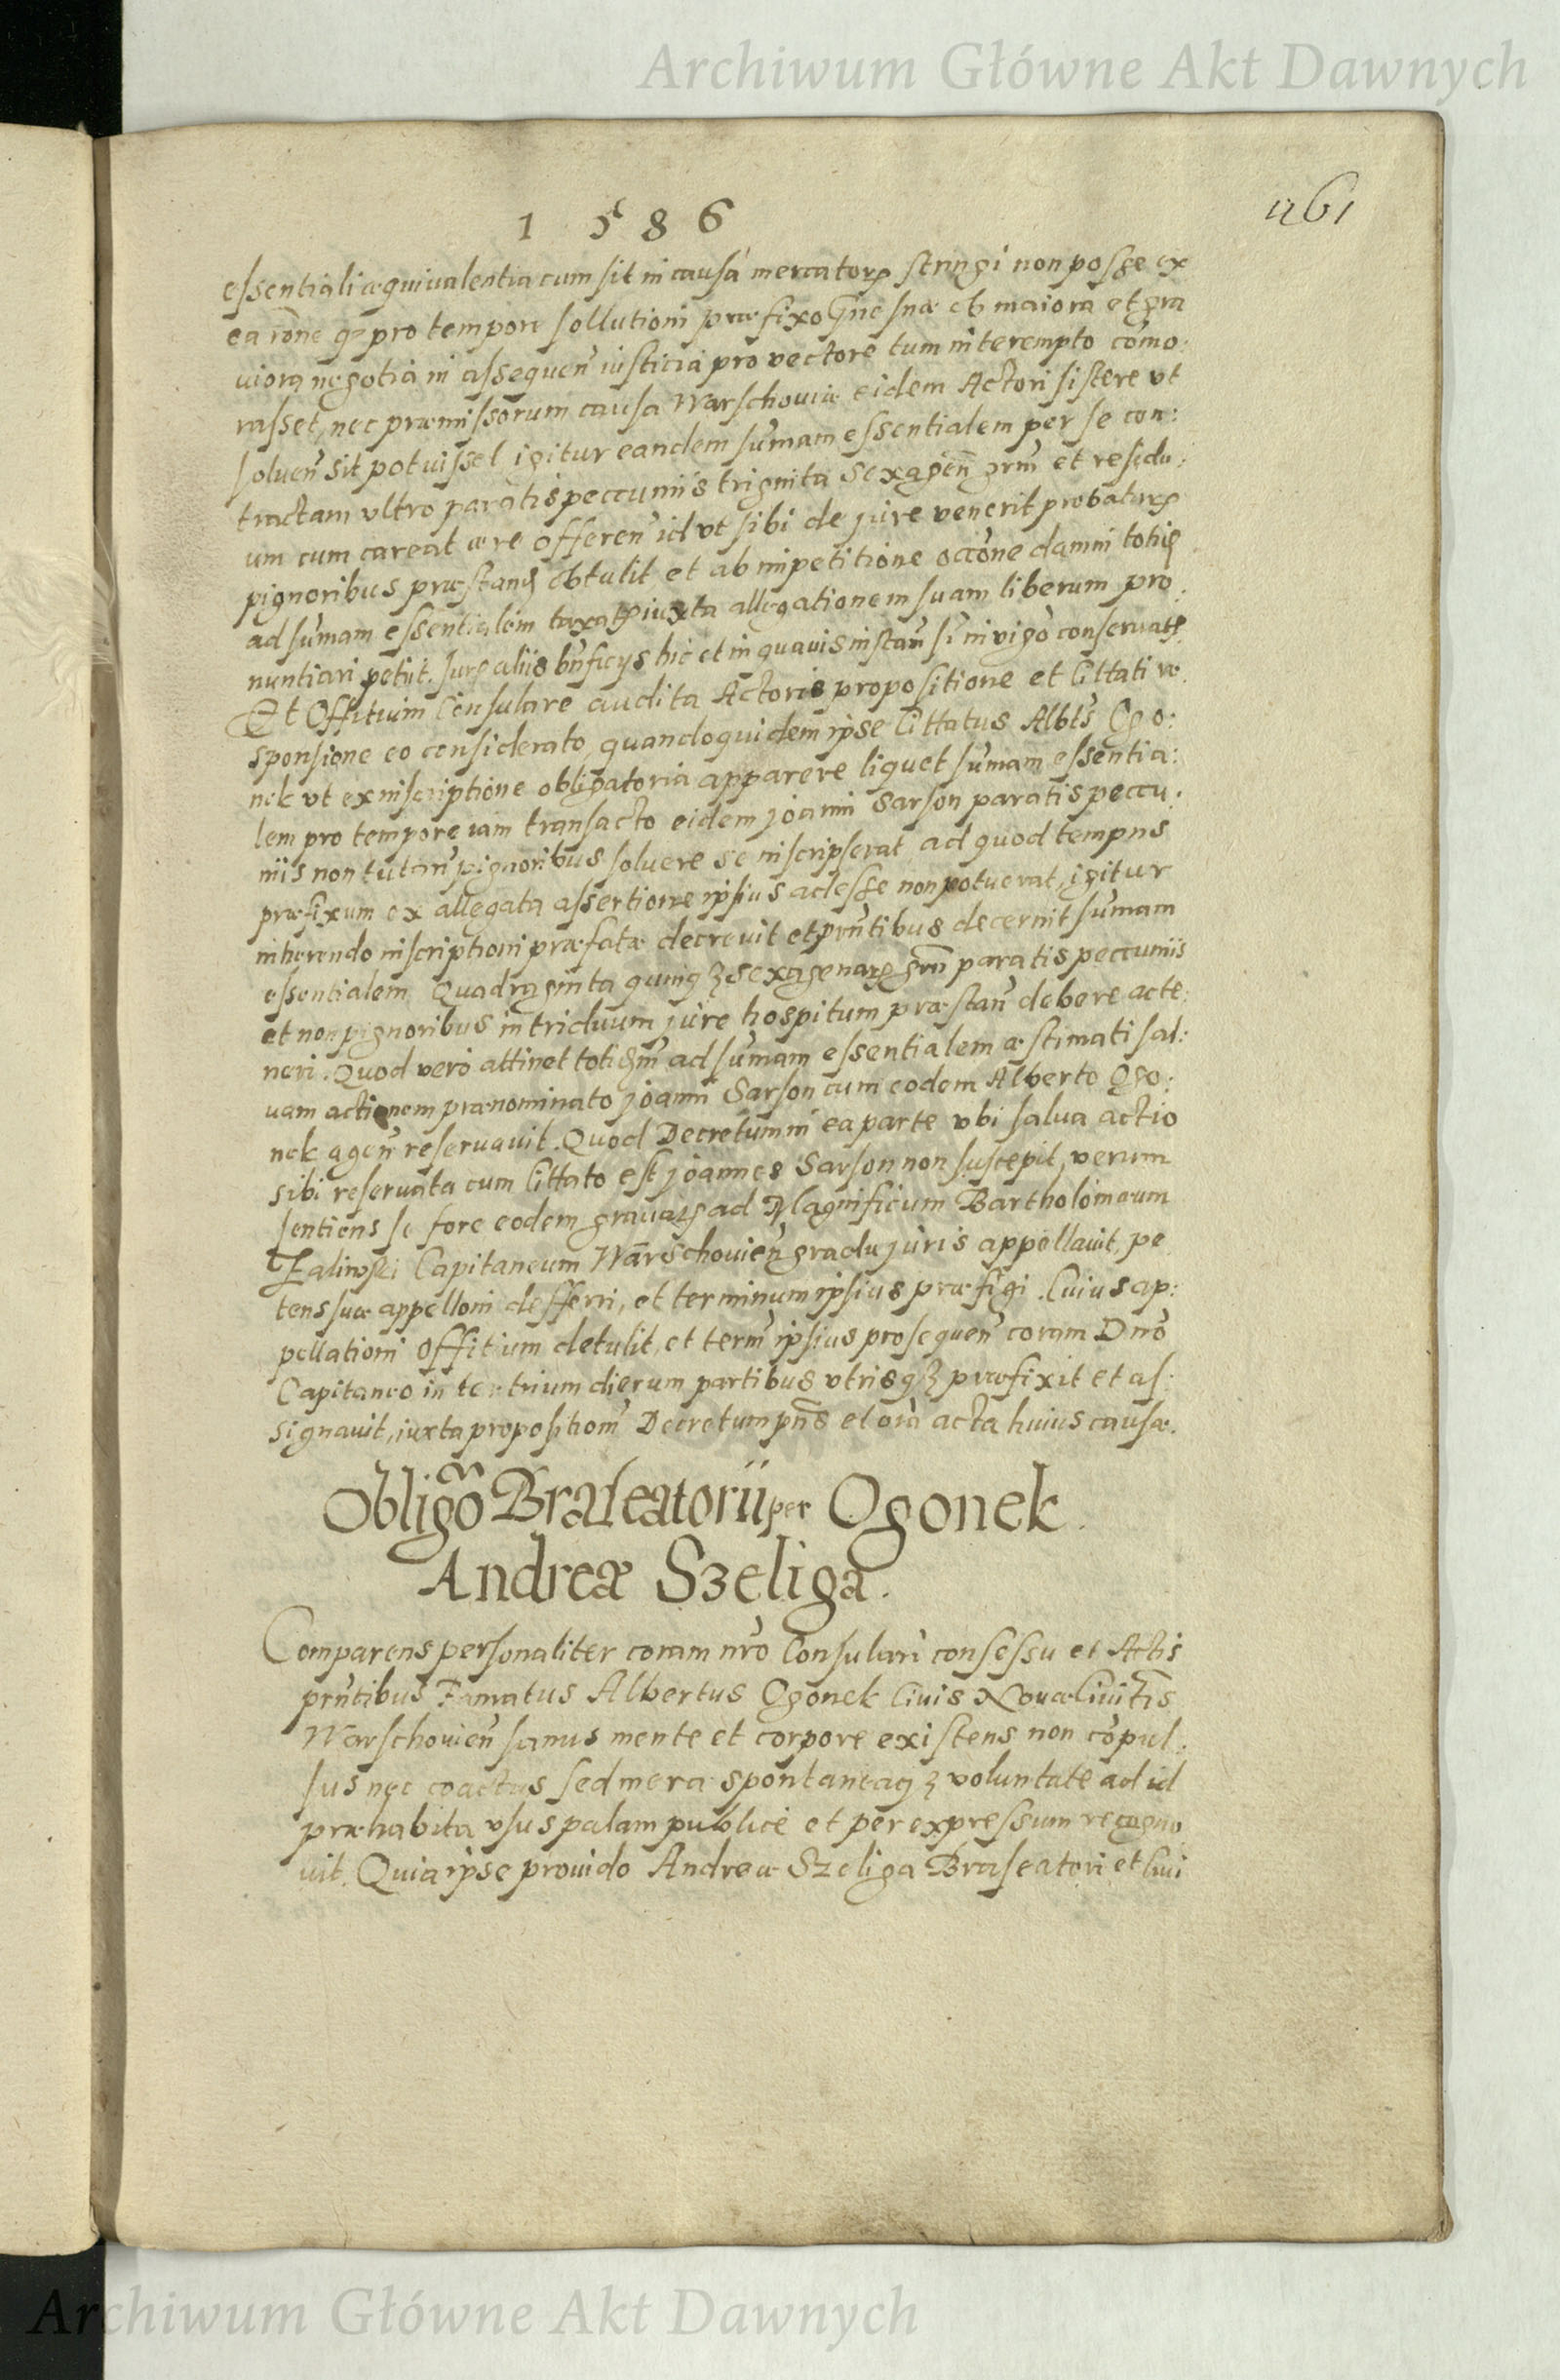 Archiwum Główne Akt Dawnych
1 5 8 6
461
essentiali æquivalentia cum sit in causa mercatorꝝ stringi non posse ex
ea rōne qꝫ pro tempore sollutioni præfixo ob maiora et gra
viora negotia in assequen iusticia pro vectore tum interempto como:
rasset, nec præmissorum causa Warschoviæ eidem Actori sistere vt
soluen sit potuisset, igitur eandem sumam essentialem per se con:
tractam vltro paratis peccuniis triginta Sexagen grm et residu:
um cum careat ære offeren id vt sibi de jure venerit probaturꝰ
pignoribus præstand obtulit et ab impetitione occōne damni totiꝰ
ad sumam essentialem taxatꝭ iuxta allegationem suam liberum pro:
nuntiari petiit. Jurꝭ aliis bnficijs hic et in quavis instan conservatꝭ
Et Offitium Consulare audita Actoris propositione et Cittati re:
sponsione eo considerato, quandoquidem ipse Cittatus Albts Ogo:
nek vt ex inscriptione obligatoria apparere liquet sumam essentia:
lem pro tempore iam transacto eidem joanni Sarson paratis peccu:
niis non pignoribus soluere se inscripserat, ad quod tempus
præfixum ex allegata assertione ipsius adesse non potuerat, igitur
inherendo inscriptioni præfatæ decrevit et pntibus decernit sumam
essentialem Quadraginta quinqꝫ sexagenarꝝ grm paratis peccuniis
et non pignoribus in triduum jure hospitum præstan debere acte:
nori. Quod vero attinet totidem ad sumam essentialem æstimati sal:
vam actionem prænominato joanni Sarson cum eodem Alberto Ogo:
nek agen reservavit. Quod Decretum in ea parte vbi salva actio
sibi reservata cum Cittato est joannes Sarson non suscepit, verum
sentiens se fore eodem gravatꝭ ad Magnificum Bartholomeum
Zaliwski Capitaneum Warschovien gradu juris appellavit, pe
tens suæ appelloni defferri, et terminum ipsius præfigi. Cuius ap:
pellationi Offitium detulit, et term ipsius prosequen coram Dno
Capitaneo in trium dierum partibus vtrisqꝫ præfixit et as:
signavit, iuxta propositiom Decretum pns et oia acta huius causæ.
Obligo Braseatorii per Ogonek
Andreæ Szeliga.
Comparens personaliter coram nro Consulari consessu et Actis
pntibus Famatus Albertus Ogonek Civis Novæ Civittis
Warschovien sanus mente et corpore existens non copul:
sus nec coactus sed mera spontaneaqꝫ voluntate ad id
præhabita vsus palam publice et per expressum recogno
vit. Quia ipse provido Andreæ Szeliga Braseatori et Civi
Archiwum Główne Akt Dawnych